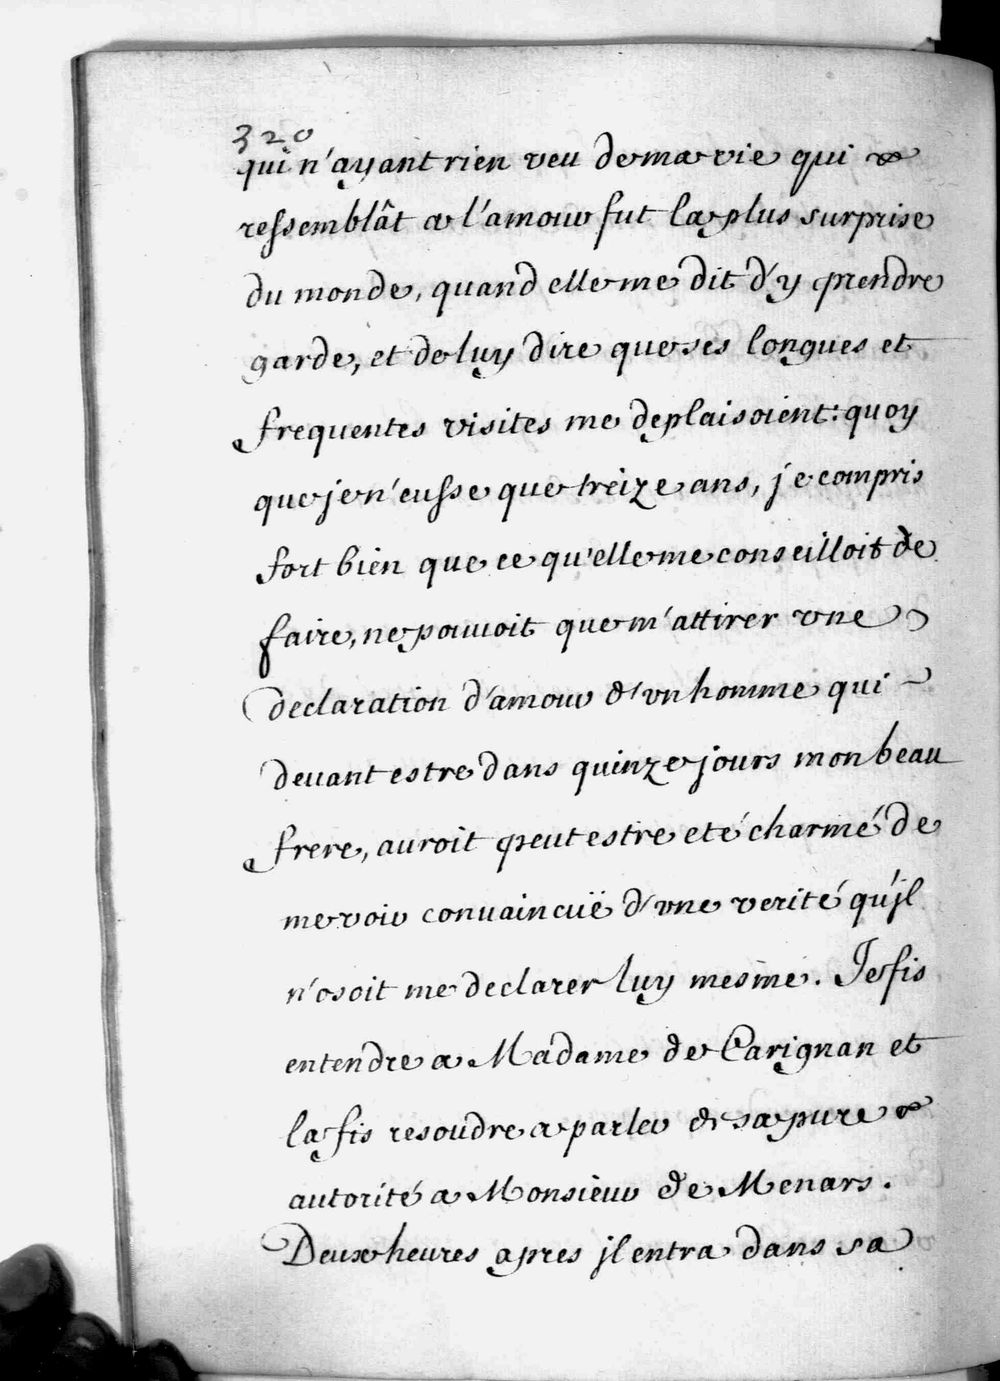 320
qui n'ayant rien veu de ma vie qui
ressemblât a l'amour fut la plus surprise
du monde, quand elle me dit d'y prendre
garde, et de luy dire que ses longues et
frequentes visites me deplaisoient: quoy
que je n'eusse que treize ans, je compris
fort bien que ce qu'elle me conseilloit de
faire, ne pouvoit que m'attirer vne
declaration d'amour d'vn homme qui
deuant estre dans quinze jours mon beau
frere, auroit peut estre eté charmé de
me voir conuaincuë d'vne verité qu'jl
n'osoit me declarer luy mesme. Je fis
entendre a Madame de Carignan et
la fis resoudre a parler de sa pure
autorité a Monsieur de Menars.
Deux heures apres jl entra dans sa